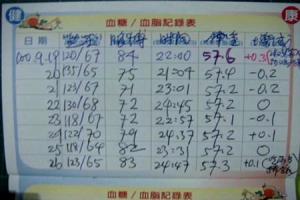 健 血糖／血脂記錄表 康
日期 時間
100.9.19 120/67 84 22:00 57.6 +0.3
20 135/65 75 21:04 57.4 -0.2
21 123/67 71 23:01 57.2 -0.2
22 130/68 72 24:45 57.2 0
23 118/67 72 22:57 57.1 -0.1
24 122/70 79 24:37 57.2 +0.1
25 118/64 82 23:31 57.2 0
26 123/65 83 24:47 57.3 +0.1
血糖／血脂記錄表